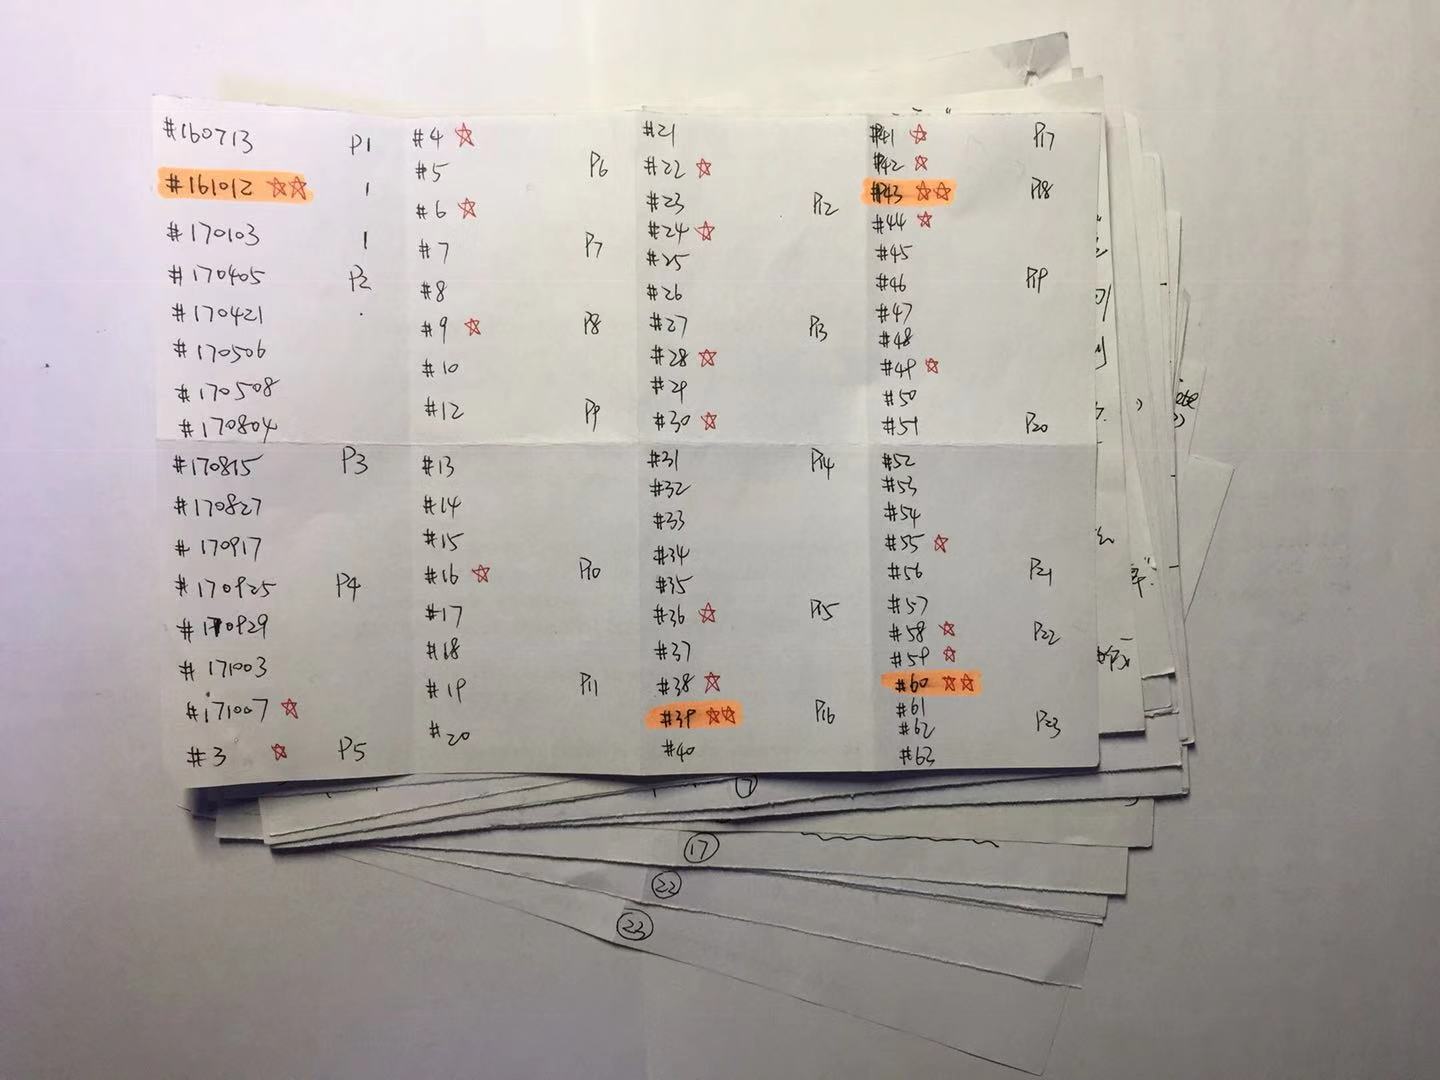 #160713 P1
#161012 ☆☆ 1
#170103 1
#170405 P2
#170421
#170506
#170508
#170804
#170815 P3
#170827
#170917
#170925 P4
#170929
#171003
#171007 ☆
#3 ☆ P5
#4 ☆
#5 P6
#6 ☆
#7 P7
#8
#9 ☆ P8
#10
#12 P9
#13
#14
#15
#16 ☆ P10
#17
#18
#19 P11
#20
#21
#22 ☆
#23 P12
#24 ☆
#25
#26
#27 P13
#28 ☆
#29
#30 ☆
#31 P14
#32
#33
#34
#35
#36 ☆ P15
#37
#38 ☆
#39 ☆☆ P16
#40
#41 ☆ P17
#42 ☆
#43 ☆☆ P18
#44 ☆
#45
#46 P19
#47
#48
#49 ☆
#50
#51 P20
#52
#53
#54
#55 ☆
#56 P21
#57
#58 ☆ P22
#59 ☆
#60 ☆☆
#61
#62 P23
#63
⑰
㉒
㉓